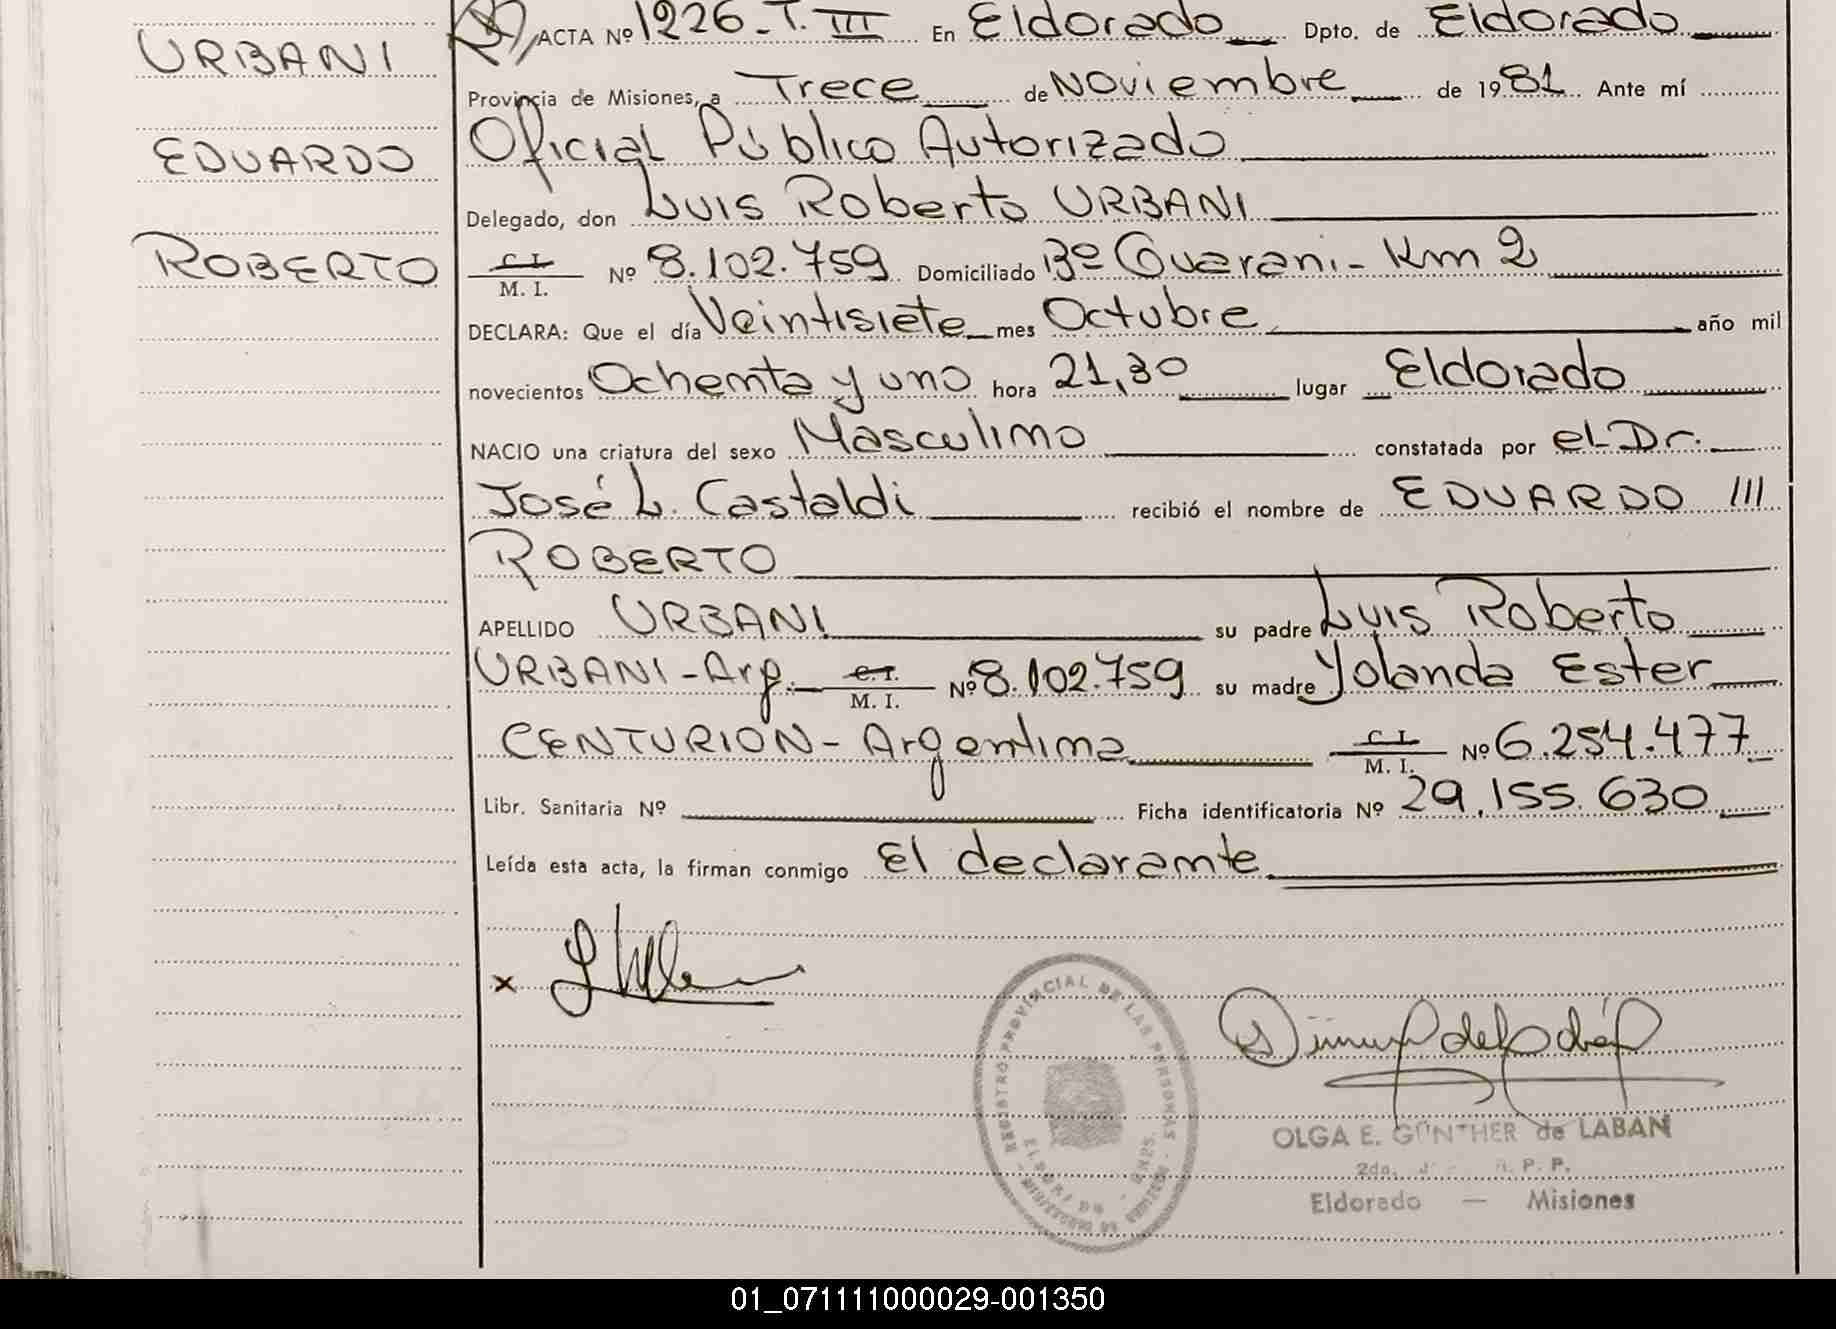 URBANI
EDUARDO
ROBERTO
ACTA Nº 1226-T. III En Eldorado Dpto. de Eldorado
Provincia de Misiones, a Trece de Noviembre de 1981 Ante mí
Oficial Público Autorizado
Delegado, don Luis Roberto URBANI
C. I.
M. I. Nº 8.102.759 Domiciliado Bº Guarani - Km 2
DECLARA: Que el día Veintisiete mes Octubre año mil
novecientos Ochenta y uno hora 21,30 lugar Eldorado
NACIO una criatura del sexo Masculino constatada por el Dr.
José L. Castaldi recibió el nombre de EDUARDO
ROBERTO
APELLIDO URBANI su padre Luis Roberto
URBANI - Arg. C. I.
M. I. Nº 8.102.759 su madre Yolanda Ester
CENTURION - Argentina C. I.
M. I. Nº 6.254.477
Libr. Sanitaria Nº Ficha identificatoria Nº 29.155.630
Leída esta acta, la firman conmigo El declarante
x
REGISTRO PROVINCIAL DE LAS PERSONAS
OLGA E. GÜNTHER de LABAN
2da. R. P. P.
Eldorado — Misiones
01_071111000029-001350